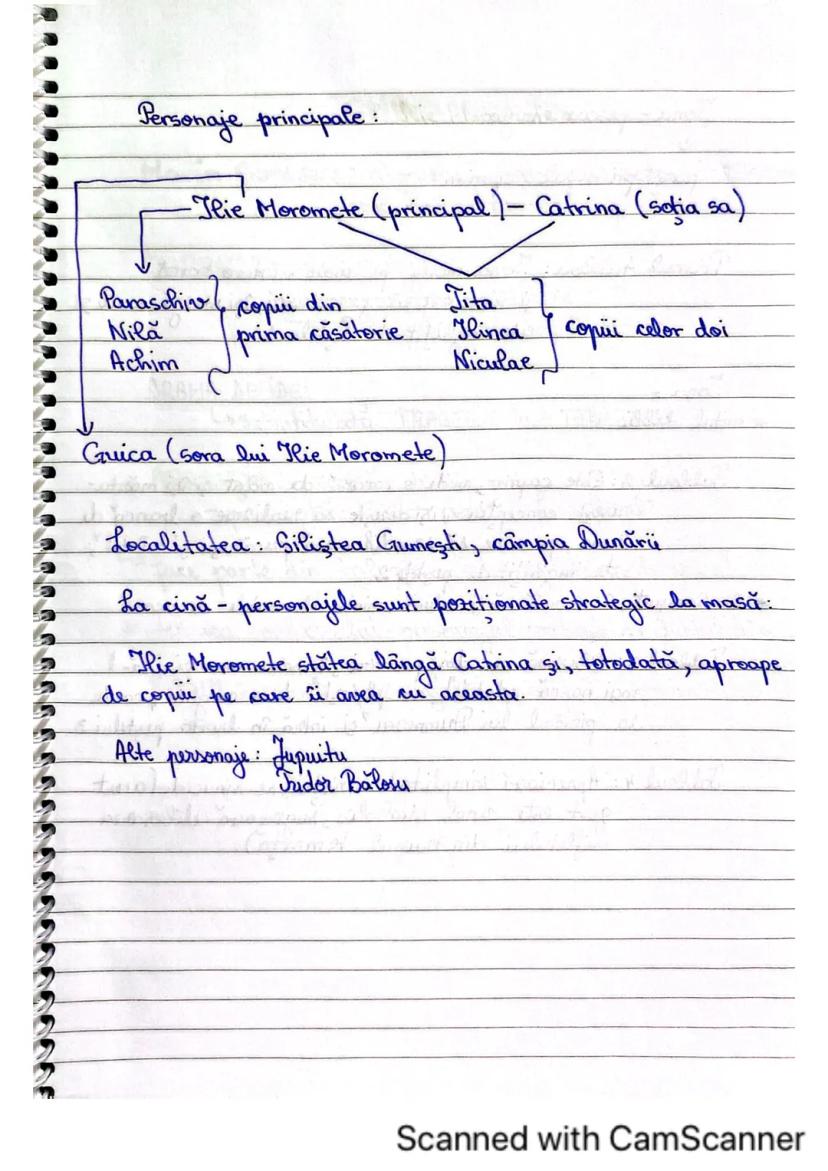 Personaje principale:
Ilie Moromete (principal) - Catrina (soția sa)
Paraschiv } copiii din
Nilă prima căsătorie
Achim
Tita
Ilinca } copiii celor doi
Niculae
Guica (sora lui Ilie Moromete)
Localitatea: Siliștea Gumești, câmpia Dunării
La cină - personajele sunt poziționate strategic la masă:
Ilie Moromete stătea lângă Catrina și, totodată, aproape
de copiii pe care îi avea cu aceasta.
Alte personaje: Jupuitu
Tudor Bălosu
Scanned with CamScanner